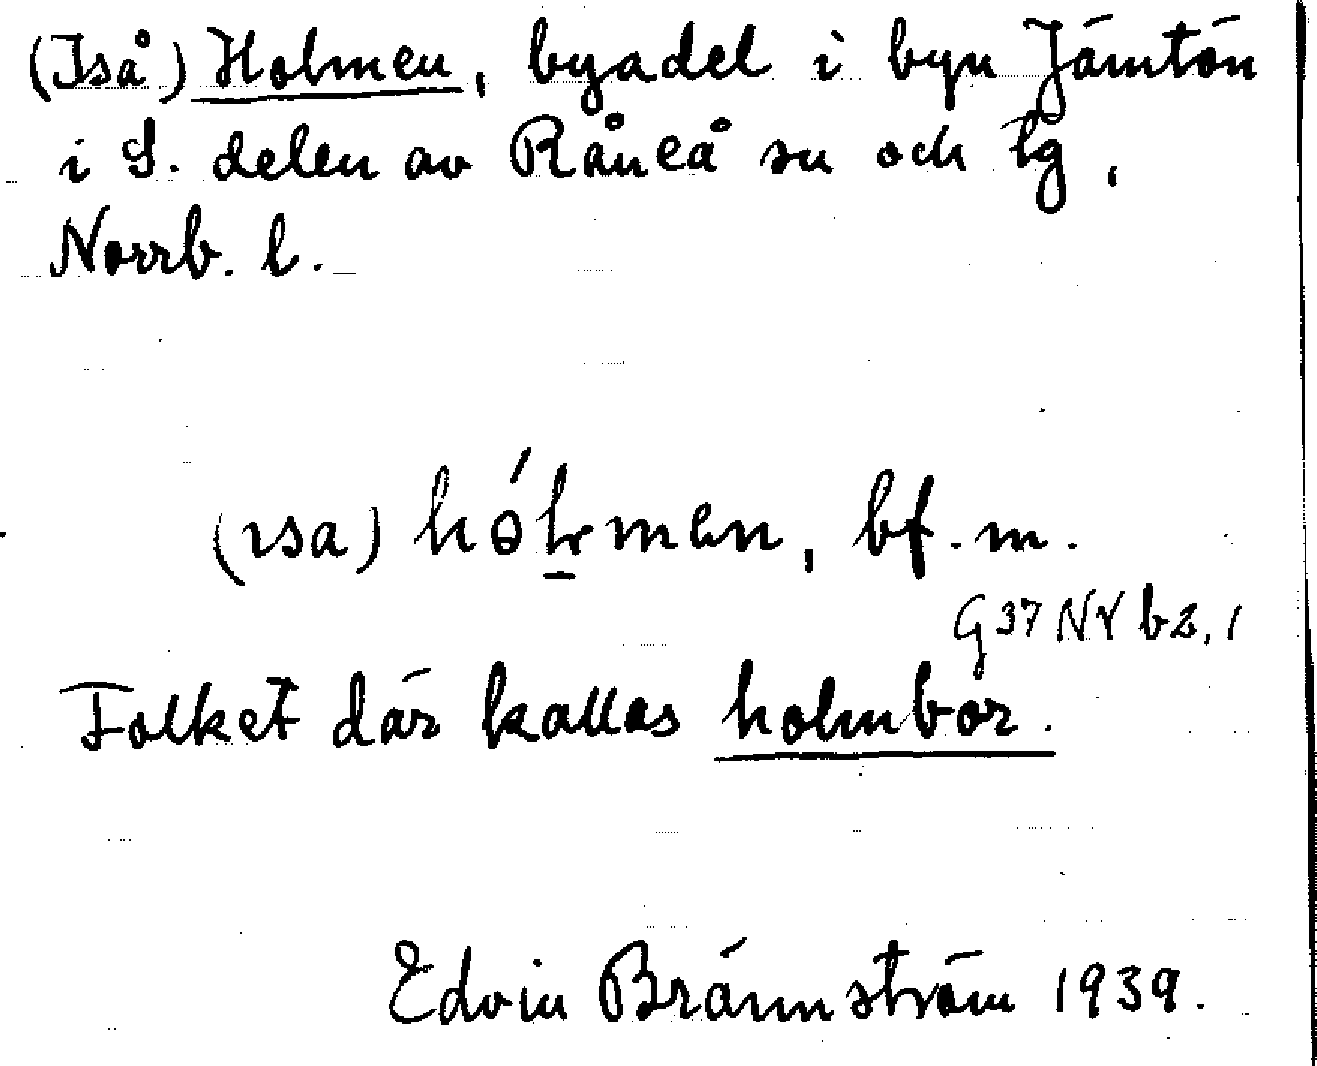 (Iså) Holmen, byadel i byn Jämtön
i S. delen av Råneå sn och tg,
Norrb. l.
(ısa) hólmen, bf. m.
G 37 NV b 2, 1
Folket där kallas holmbor.
Edvin Brännström 1939.